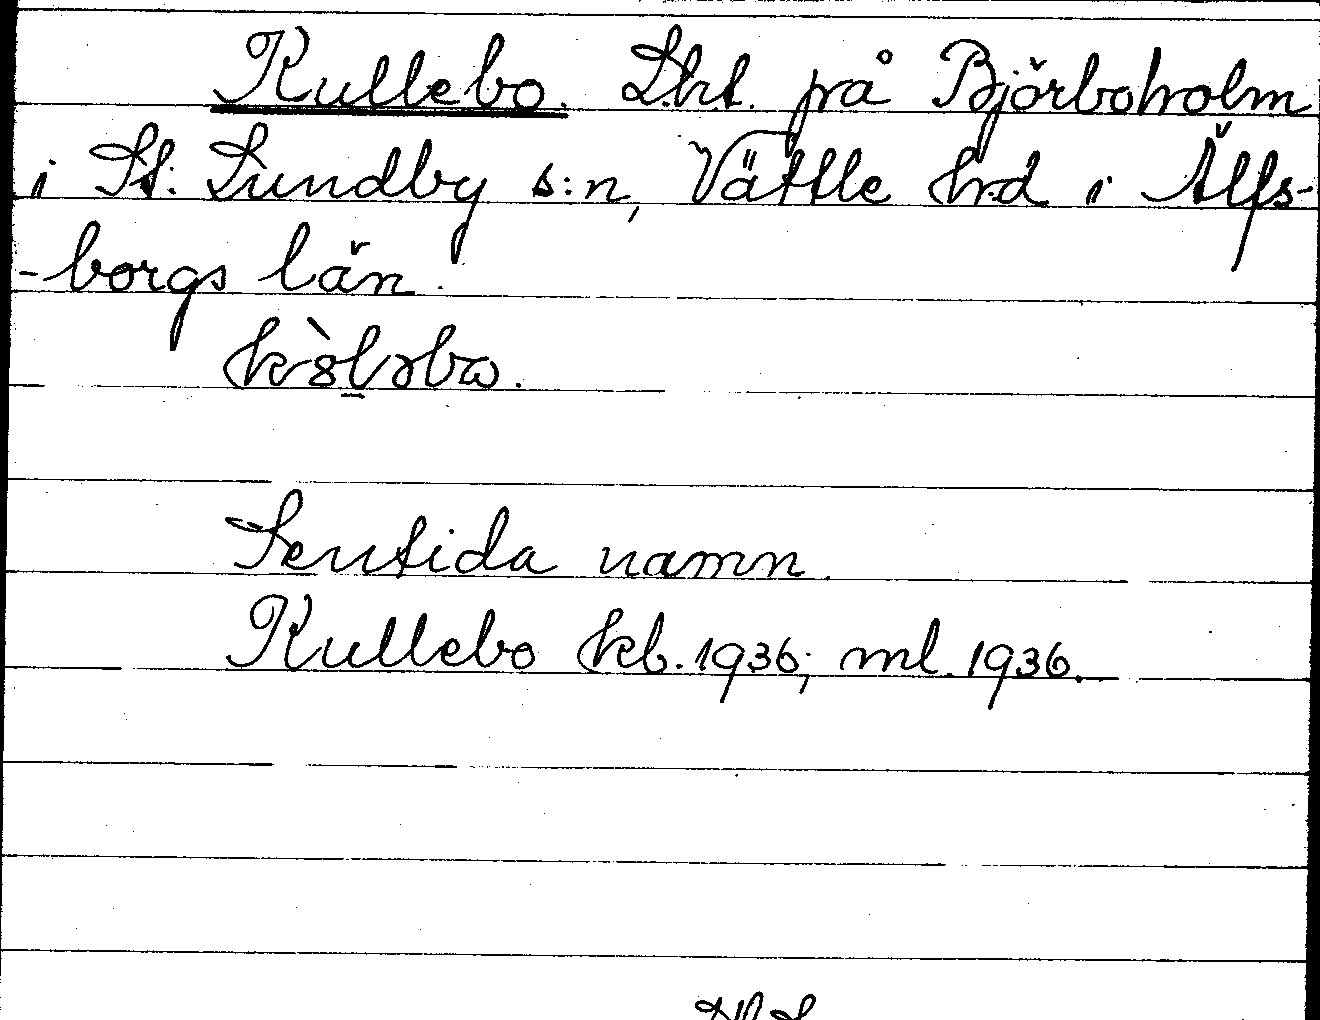 Kullebo. Lht. på Björboholm
i St. Lundby s:n, Vättle hrd i Älfs-
-borgs län.
Sentida namn.
Kullebo kb. 1936; ml. 1936.